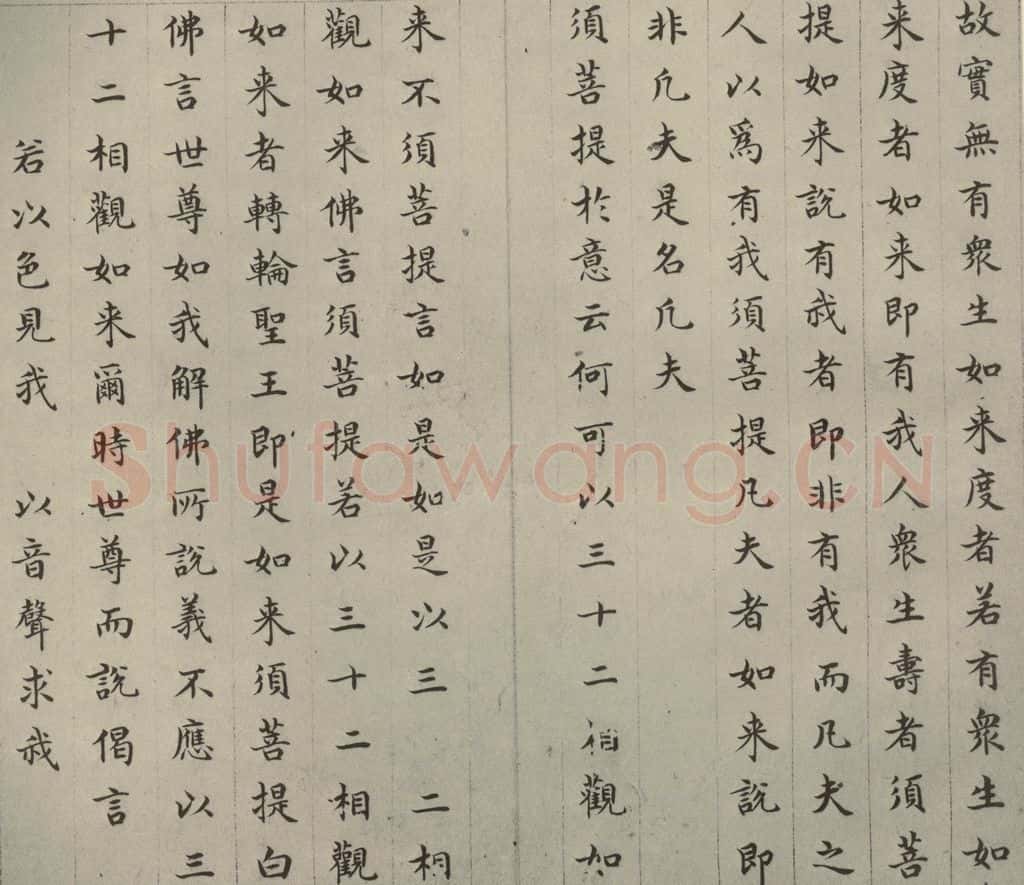 故實無有衆生如来度者若有衆生如
来度者如来即有我人衆生壽者須菩
提如来說有我者即非有我而凡夫之
人以爲有我須菩提凡夫者如来說即
非凡夫是名凡夫
須菩提於意云何可以三十二相觀如
来不須菩提言如是如是以三 二相
觀如来佛言須菩提若以三十二相觀
如来者轉輪聖王即是如来須菩提白
佛言世尊如我解佛所說義不應以三
十二相觀如来爾時世尊而說偈言
若以色見我 以音聲求我
Shufawang.CN